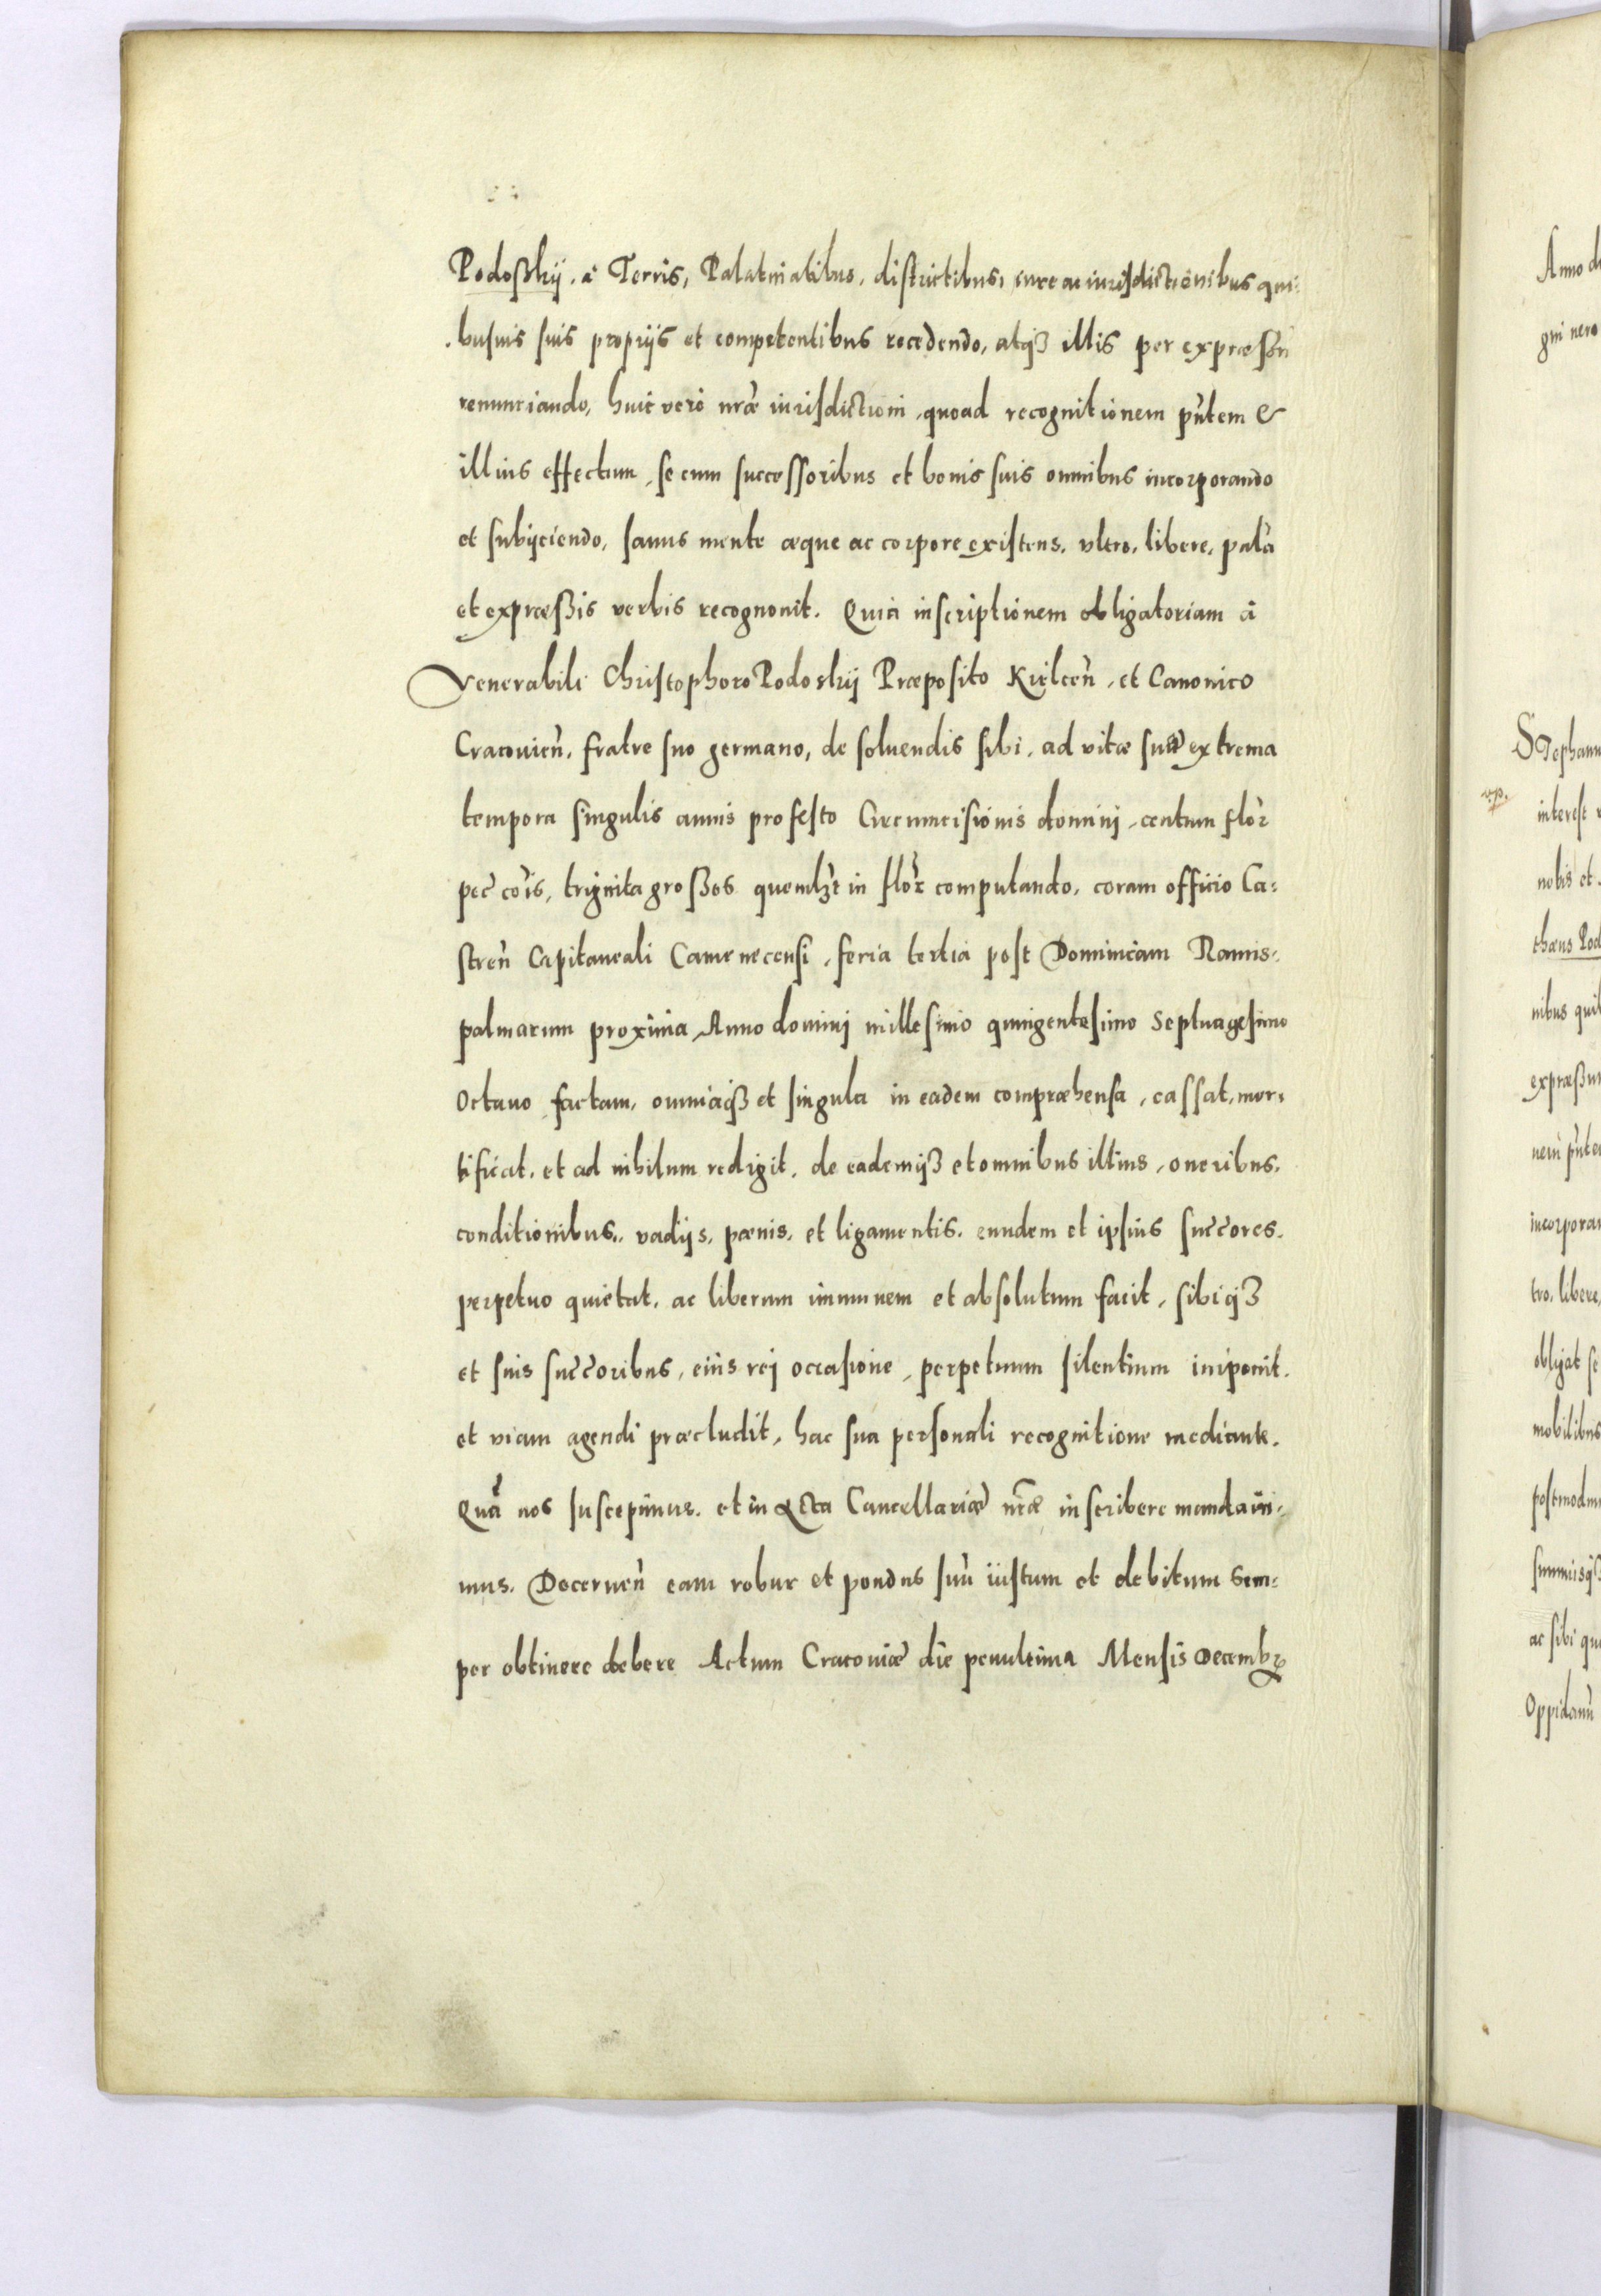 Podoßkÿ. à Terris, Palatinatibus, districtibus, iure ac iurisdictionibus qui:
busuis suis proprijs et competentibus recedendo, atqꝫ illis per expræssũ
renunciando, huic vero nr̃æ iurisdictioni, quoad recognitionem pñtem &
illius effectum, se cum successoribus et bonis suis omnibus incorporando
et subijciendo, sanus mente æque ac corpore existens. vltro, libere, palã
et expræßis verbis recognouit. Quia inscriptionem obligatoriam à
Venerabili Christophoro Podoskij Præposito Kielceñ, et Canonico
Cracouieñ. fratre suo germano, de soluendis sibi, ad vitæ suæ extrema
tempora singulis annis pro festo Circumcisionis dominj, centum flor̃
pec̃ cõis, triginta großos quemlꝫt in flor̃ computando, coram officio Ca:
streñ Capitaneali Camenecensi, feria tertia post Dominicam Ramis:
palmarum proxima Anno dominj millesimo quingentesimo Septuagesimo
Octauo factam, omniaqꝫ et singula in eadem compræhensa, cassat, mor:
tificat. et ad nihilum redigit. de eademqꝫ et omnibus illius, oneribus.
conditionibus,. vadijs, pænis. et ligamentis. eundem et ipsius succ̃ores.
perpetuo quietat. ac liberum immunem et absolutum facit, sibiqꝫ
et suis succ̃oribus, eius rej occasione, perpetuum silentium imponit.
et viam agendi præcludit, hac sua personali recognitione mediante.
Quã nos suscepimus. et in Acta Cancellariæ nr̃æ inscribere mandaui:
mus. Decerneñ eam robur et pondus suũ iustum et debitum sem:
per obtinere debere Actum Cracouiæ die penultima Mensis Decembꝝ
Anno d
gni nero
Stephann
vp.
interest
nobis et
thæus Pod
nibus quib
expræßum
nem pñte
incorporan
tro, libere,
obligat se
mobilibus
postmodum
summisqꝫ
ac sibi qu
Oppidanũ